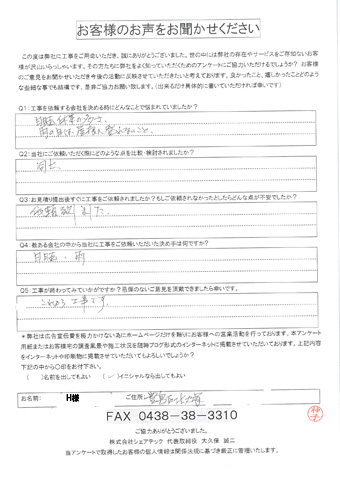 お客様のお声をお聞かせください
この度は弊社に工事をご用命いただき、誠にありがとうございました。世の中には弊社の存在やサービスをご存知ないお客
様が沢山いらっしゃいます。その方たちに弊社をよく知っていただくためのアンケートにご協力いただけるでしょうか？ お客様
のご意見をお聞かせいただき今後の活動に反映させていきたいと考えております。良かったこと、嬉しかったことどのよう
な些細な事でも結構です。是非ご協力お願い致します。（出来るだけ具体的に書いていただければ幸いです）
Q1：工事を依頼する会社を決める時にどんなことで悩まれていましたか？
Q2：当社にご依頼いただく際にどのような点を比較・検討されましたか？
Q3：お見積り提出後すぐに工事をご依頼されましたか？もしご依頼されなかったとしたらどんな点が不安でしたか？
Q4：数ある会社の中から当社に工事をご依頼いただいた決め手は何ですか？
Q5：工事が終わってみていかがですか？忌憚のないご意見を頂戴できましたら幸いです。
これから工事です。
＊弊社は広告宣伝費を極力かけない為にホームページだけを頼りにお客様への営業活動を行っております。本アンケート
用紙またはお客様宅の調査風景や施工状況を随時ブログ形式のインターネットに掲載させていただいております。上記内容
をインターネットや印刷物に掲載させていただいてもよろしいでしょうか？
下記の中から〇印をお付け下さい。
（　）名前を出してもよい （✓）イニシャルなら出してもよい
お名前： H様 ご住所：
FAX 0438-38-3310
ご協力ありがとうございました。
株式会社シェアテック 代表取締役 大久保 誠二
当アンケートで取得したお客様の個人情報は関係法規に基づき厳正に管理いたします。